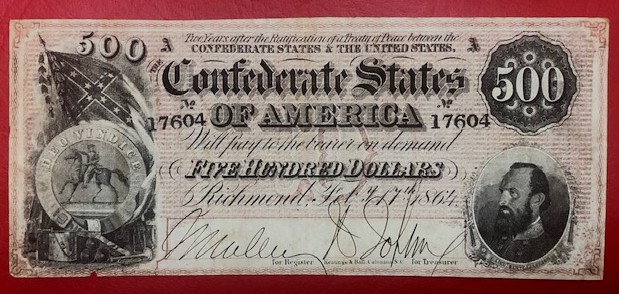 500 A Two Years after the Ratification of a Treaty of Peace between the A
CONFEDERATE STATES & THE UNITED STATES.
THE
Confederate States
500
No No
17604 OF AMERICA 17604
Will pay to the bearer on demand
DEO VINDICE
FIVE HUNDRED DOLLARS
Richmond, Feb. 17th 1864
for Register. Keatinge & Ball, Columbia, S.C. for Treasurer